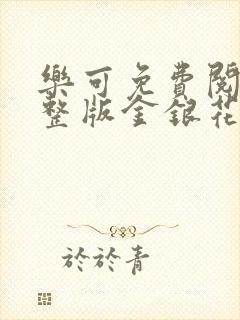 樂可免費閱
整版金銀花
於於青